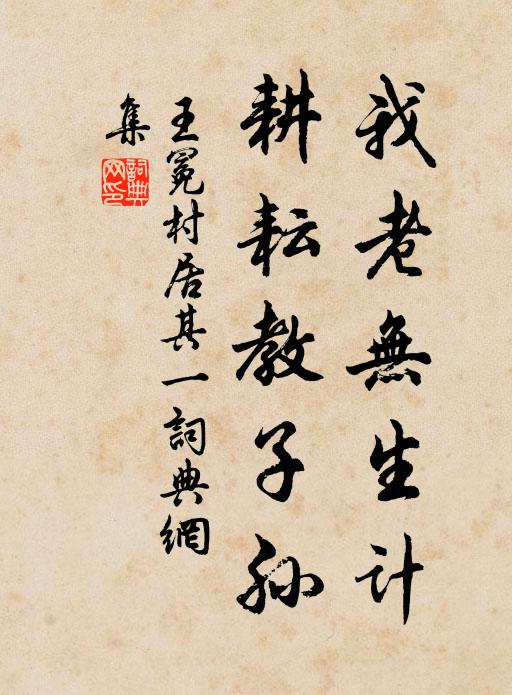 我老無生計
耕耘教子孙
王冕村居其一詞典網
集
詞典
网印